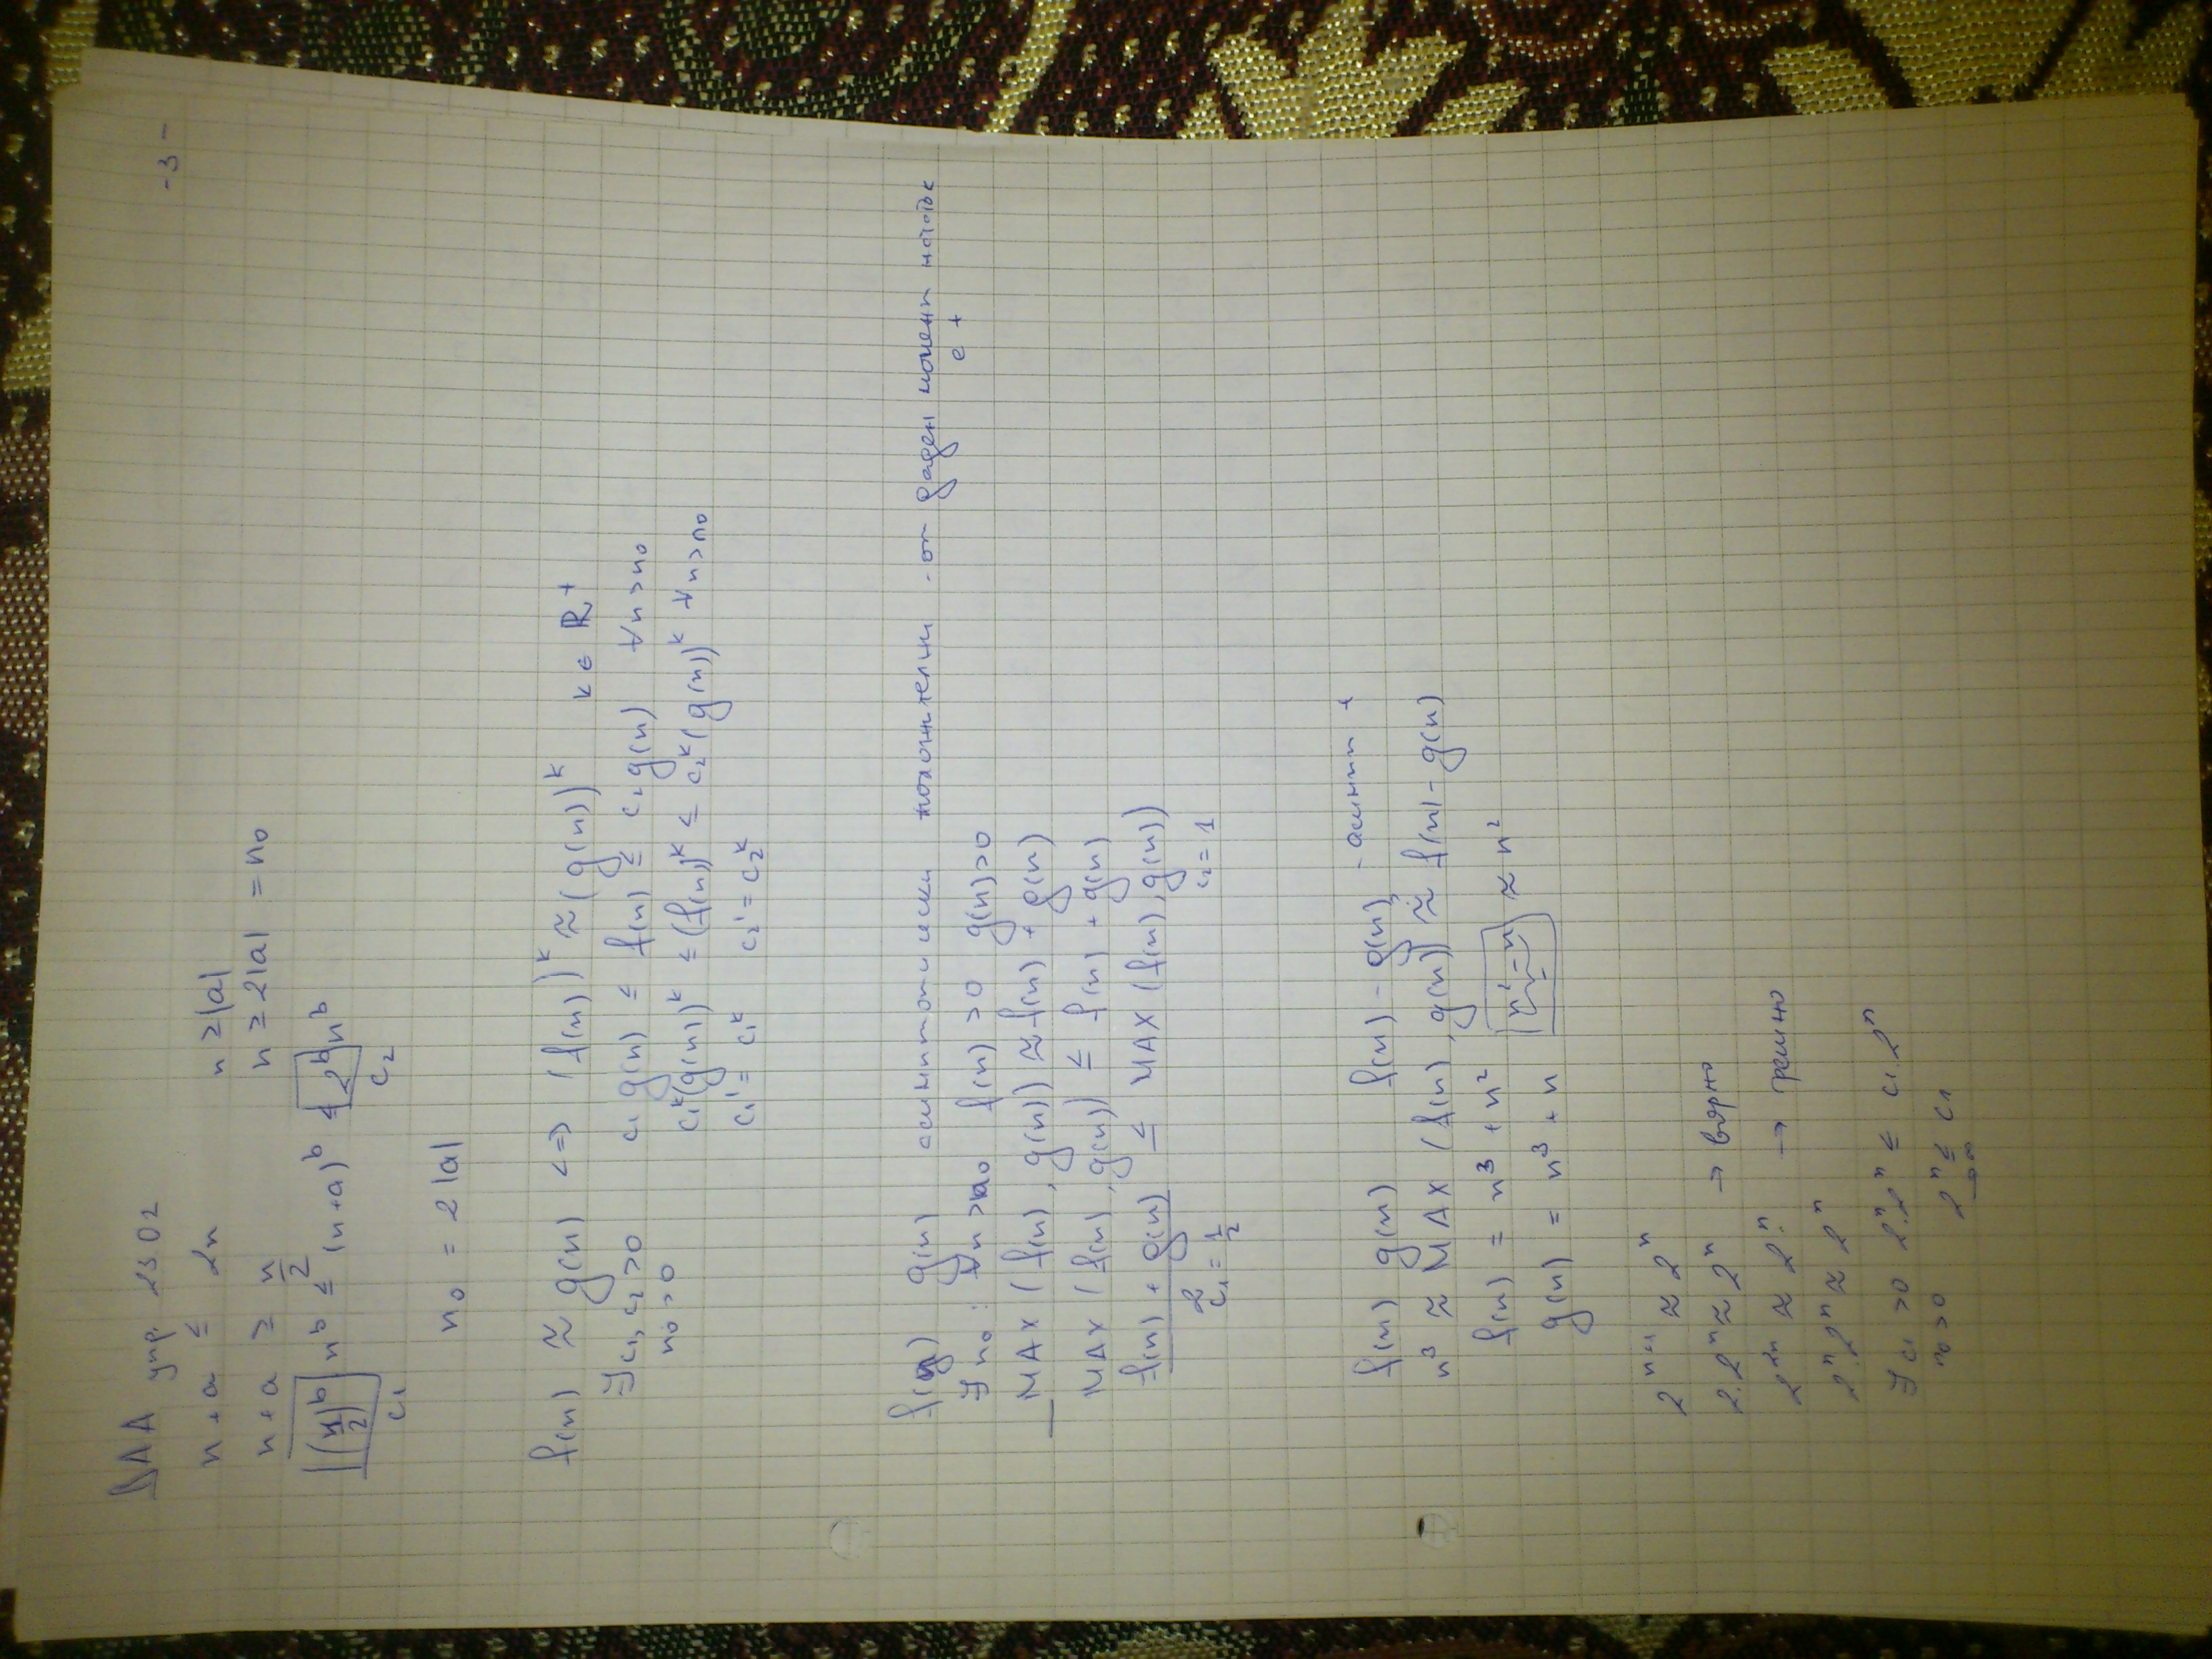 -3-
ДАА упр. 23.02
n+a ≤ 2n n ≥ |a|
n+a ≥ n/2 n ≥ 2|a| = n₀
(1/2)ᵇ nᵇ ≤ (n+a)ᵇ ≤ 2ᵇ nᵇ
c₁ c₂
n₀ = 2|a|
f(n) ≍ g(n) <=> (f(n))ᵏ ≍ (g(n))ᵏ k ∈ ℝ⁺
∃ c₁, c₂ > 0 c₁ g(n) ≤ f(n) ≤ c₂ g(n) ∀n > n₀
n₀ > 0 c₁ᵏ (g(n))ᵏ ≤ (f(n))ᵏ ≤ c₂ᵏ (g(n))ᵏ ∀n > n₀
c₁' = c₁ᵏ c₂' = c₂ᵏ
f(n) g(n) асимптотически положителни - от даден момент нататък
е +
∃ n₀ : ∀n > n₀ f(n) > 0 g(n) > 0
MAX (f(n), g(n)) ≍ f(n) + g(n)
MAX (f(n), g(n)) ≤ f(n) + g(n)
f(n) + g(n) / 2 ≤ MAX (f(n), g(n))
c₁ = 1/2 c₂ = 1
f(n) g(n) f(n) - g(n) - асимпт +
n³ ≍ MAX (f(n), g(n)) ≍ f(n) - g(n)
f(n) = n³ + n²
g(n) = n³ + n n² - n ≍ n²
2ⁿ⁺¹ ≍ 2ⁿ
2.2ⁿ ≍ 2ⁿ → вярно
2²ⁿ ≍ 2ⁿ → грешно
2ⁿ.2ⁿ ≍ 2ⁿ
∃ c₁ > 0 2ⁿ.2ⁿ ≤ c₁.2ⁿ
n₀ > 0 2ⁿ ≤ c₁
→∞